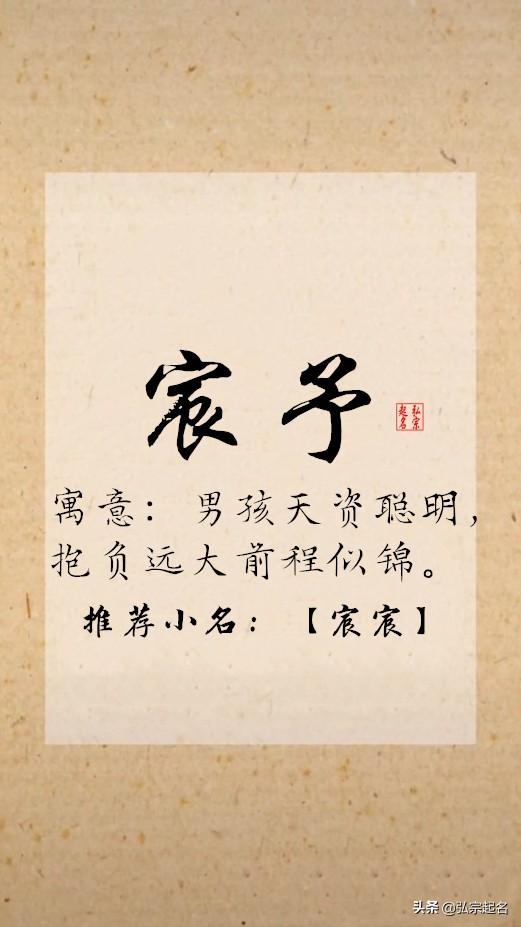 宸予
弘宗起名
寓意：男孩天资聪明，
抱负远大前程似锦。
推荐小名：【宸宸】
头条 @弘宗起名